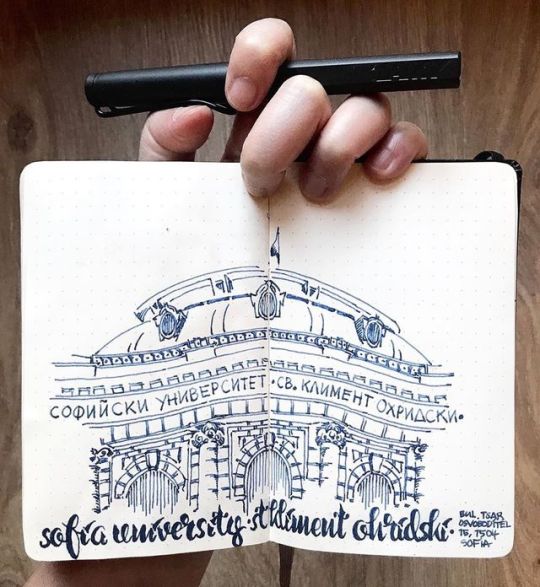 СОФИЙСКИ УНИВЕРСИТЕТ • СВ. КЛИМЕНТ ОХРИДСКИ •
sofia university • st kliment ohridski •
BUL. TSAR
OSVOBODITEL
15, 1504
SOFIA